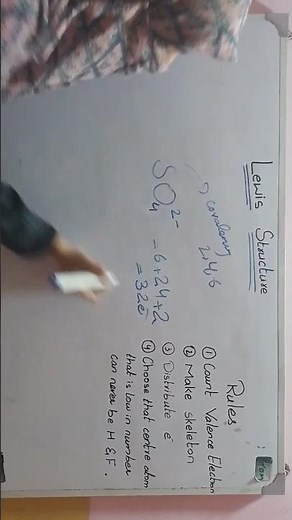 Lewis Structure
→ covalency
2,4,6
SO₄²⁻ - 6+24+2
= 32e⁻
Rules:
① Count Valence Electron
② Make Skeleton
③ Distribute e⁻
④ Choose that centre atom
that is low in number
can never be H & F.